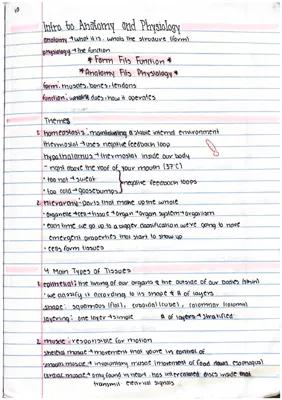 Intro to Anatomy and Physiology
anatomy → what it is, whats the structure (form)
physiology → the function
* Form Fits Function *
* Anatomy Fits Physiology *
form: muscles, bones, tendons
function: what it does, how it operates
Themes
1. homeostasis: maintaining a stable internal environment
thermostat → uses negative feedback loop
hypothalamus → thermostat inside our body
right above the roof of your mouth (37°C)
too hot → sweat
negative feedback loops
too cold → goosebumps
2. Hierarchy: parts that make up the whole
organelle → cell → tissue → organ → organ system → organism
each time we go up to a bigger classification we're going to have
emergent properties that start to show up
cells form tissues
4 Main Types of Tissues
1. epithelial: the lining of our organs & the outside of our bodies (skin)
we classify it according to its shape & # of layers
shape: squamous (flat), cuboidal (cube), columnar (column)
layering: one layer → simple # of layers → stratified
2. muscle: responsible for motion
skeletal muscle → movement that you're in control of
smooth muscle → involuntary muscle (movement of food down esophagus)
cardiac muscle → only found in heart, has intercalated discs inside that
transmit electrical signals